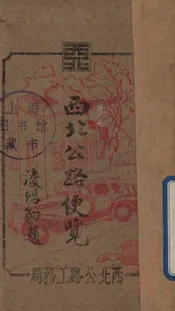 西北公路便覽
凌鴻勛題
西北公路工務局
上海
圖書館
藏書